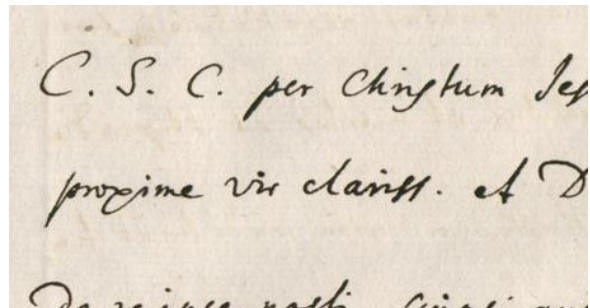 C. S. C. per Christum Jes
proxime vir clariss. et D
De re ipsa nosti